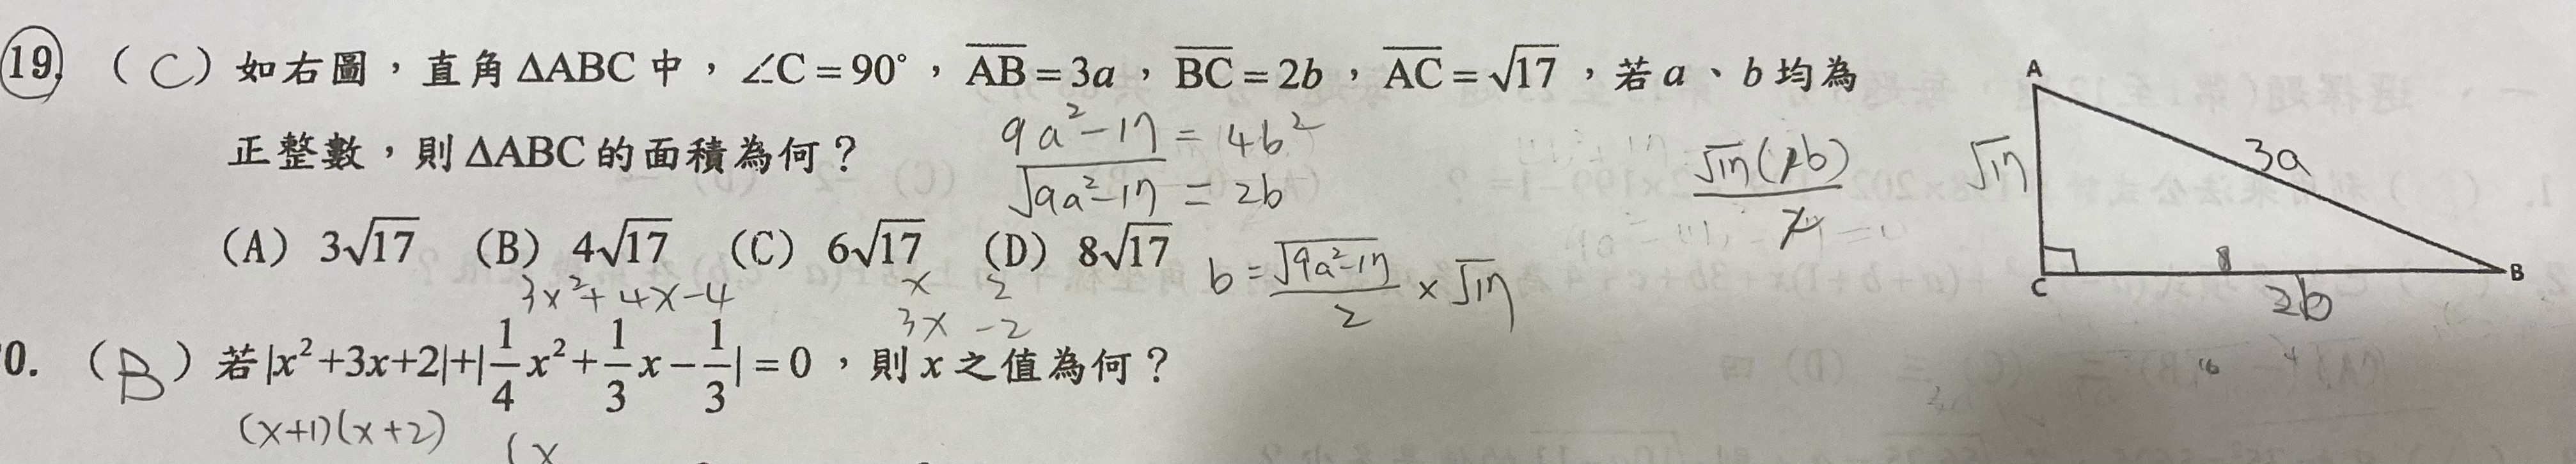 19. ( C ) 如右圖，直角 ΔABC 中，∠C = 90°，AB = 3a，BC = 2b，AC = √17，若 a、b 均為
正整數，則 ΔABC 的面積為何？
9a² - 17 = 4b²
√9a² - 17 = 2b
√17 (2b)
2
(A) 3√17 (B) 4√17 (C) 6√17 (D) 8√17
b = √9a² - 17 / 2 × √17
A
√17
3a
C
8
2b
B
3x² + 4x - 4
x 2
3x -2
0. ( B ) 若 |x² + 3x + 2| + |1/4 x² + 1/3 x - 1/3| = 0，則 x 之值為何？
(x+1)(x+2)
(x